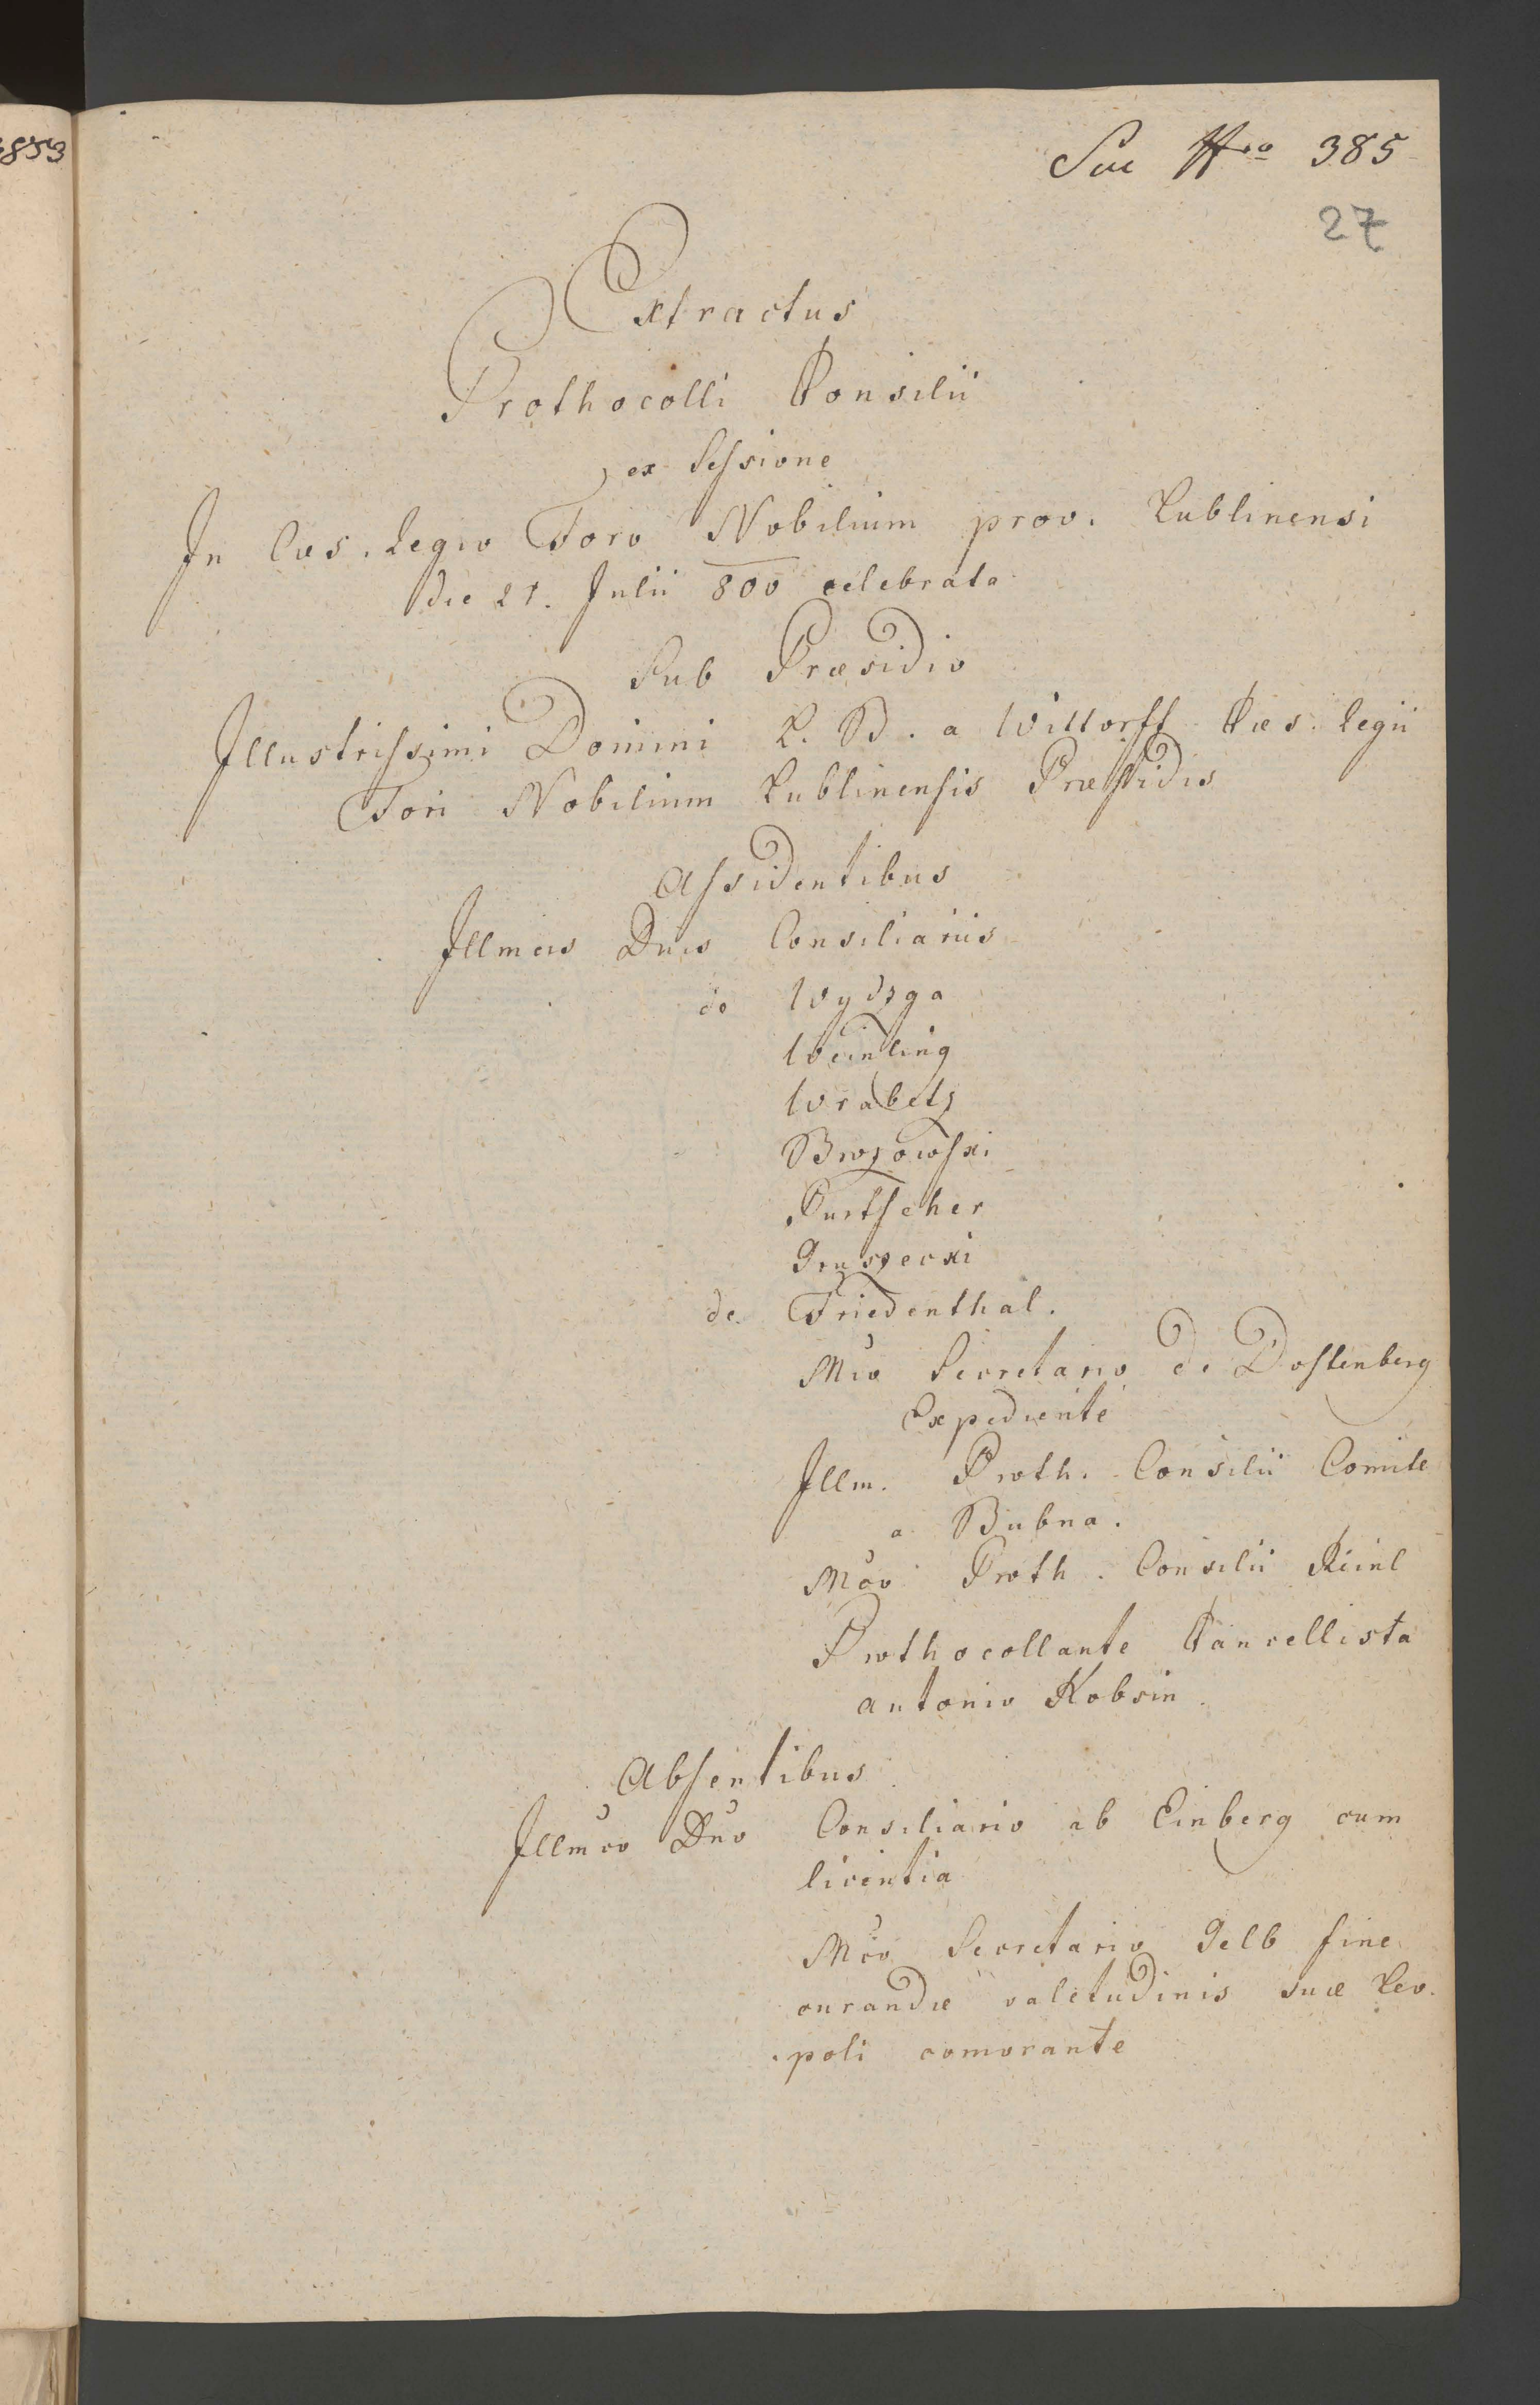 853
Suc Nro 385
27
Extractus
Prothocolli Consilii
ex Sessione
In Cæs. Regio Foro Nobilium prov. Lublinensi
die 21. Julii 800 celebrata
Sub Præsidio
Illustrissimi Domini L. B. a Wittorff Cæs. Regii
Fori Nobilium Lublinensis Præsidis
Assidentibus
Illmis Dnis Consiliariis
de Wydzga
Weinling
Wrabetz
Brozowski
Purtscher
Gruszecki
de Friedenthal.
Mco Secretario de Dostenberg
Expediente
Illm. Proth. Consilii Comite
a Bubna.
Mco Proth. Consilii Reinl
Prothocollante Cancellista
Antonio Kobsin.
Absentibus
Illmo Dno Consiliario ab Einberg cum
licentia
Mco Secretario Gelb fine
curandæ valetudinis suæ Leo.
poli comorante